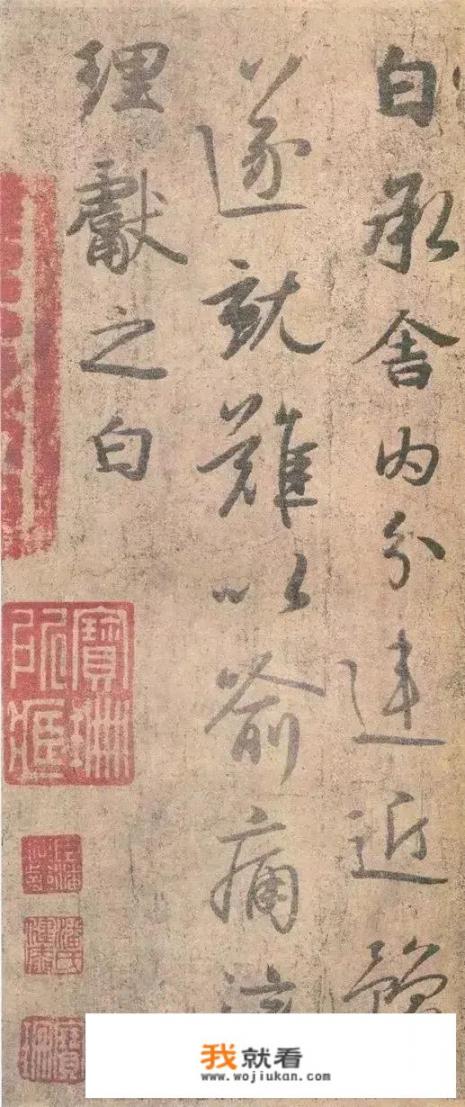 白承舍内分違近豫
遂就難以喻痛
理獻之白
我就看
www.wojiukan.com